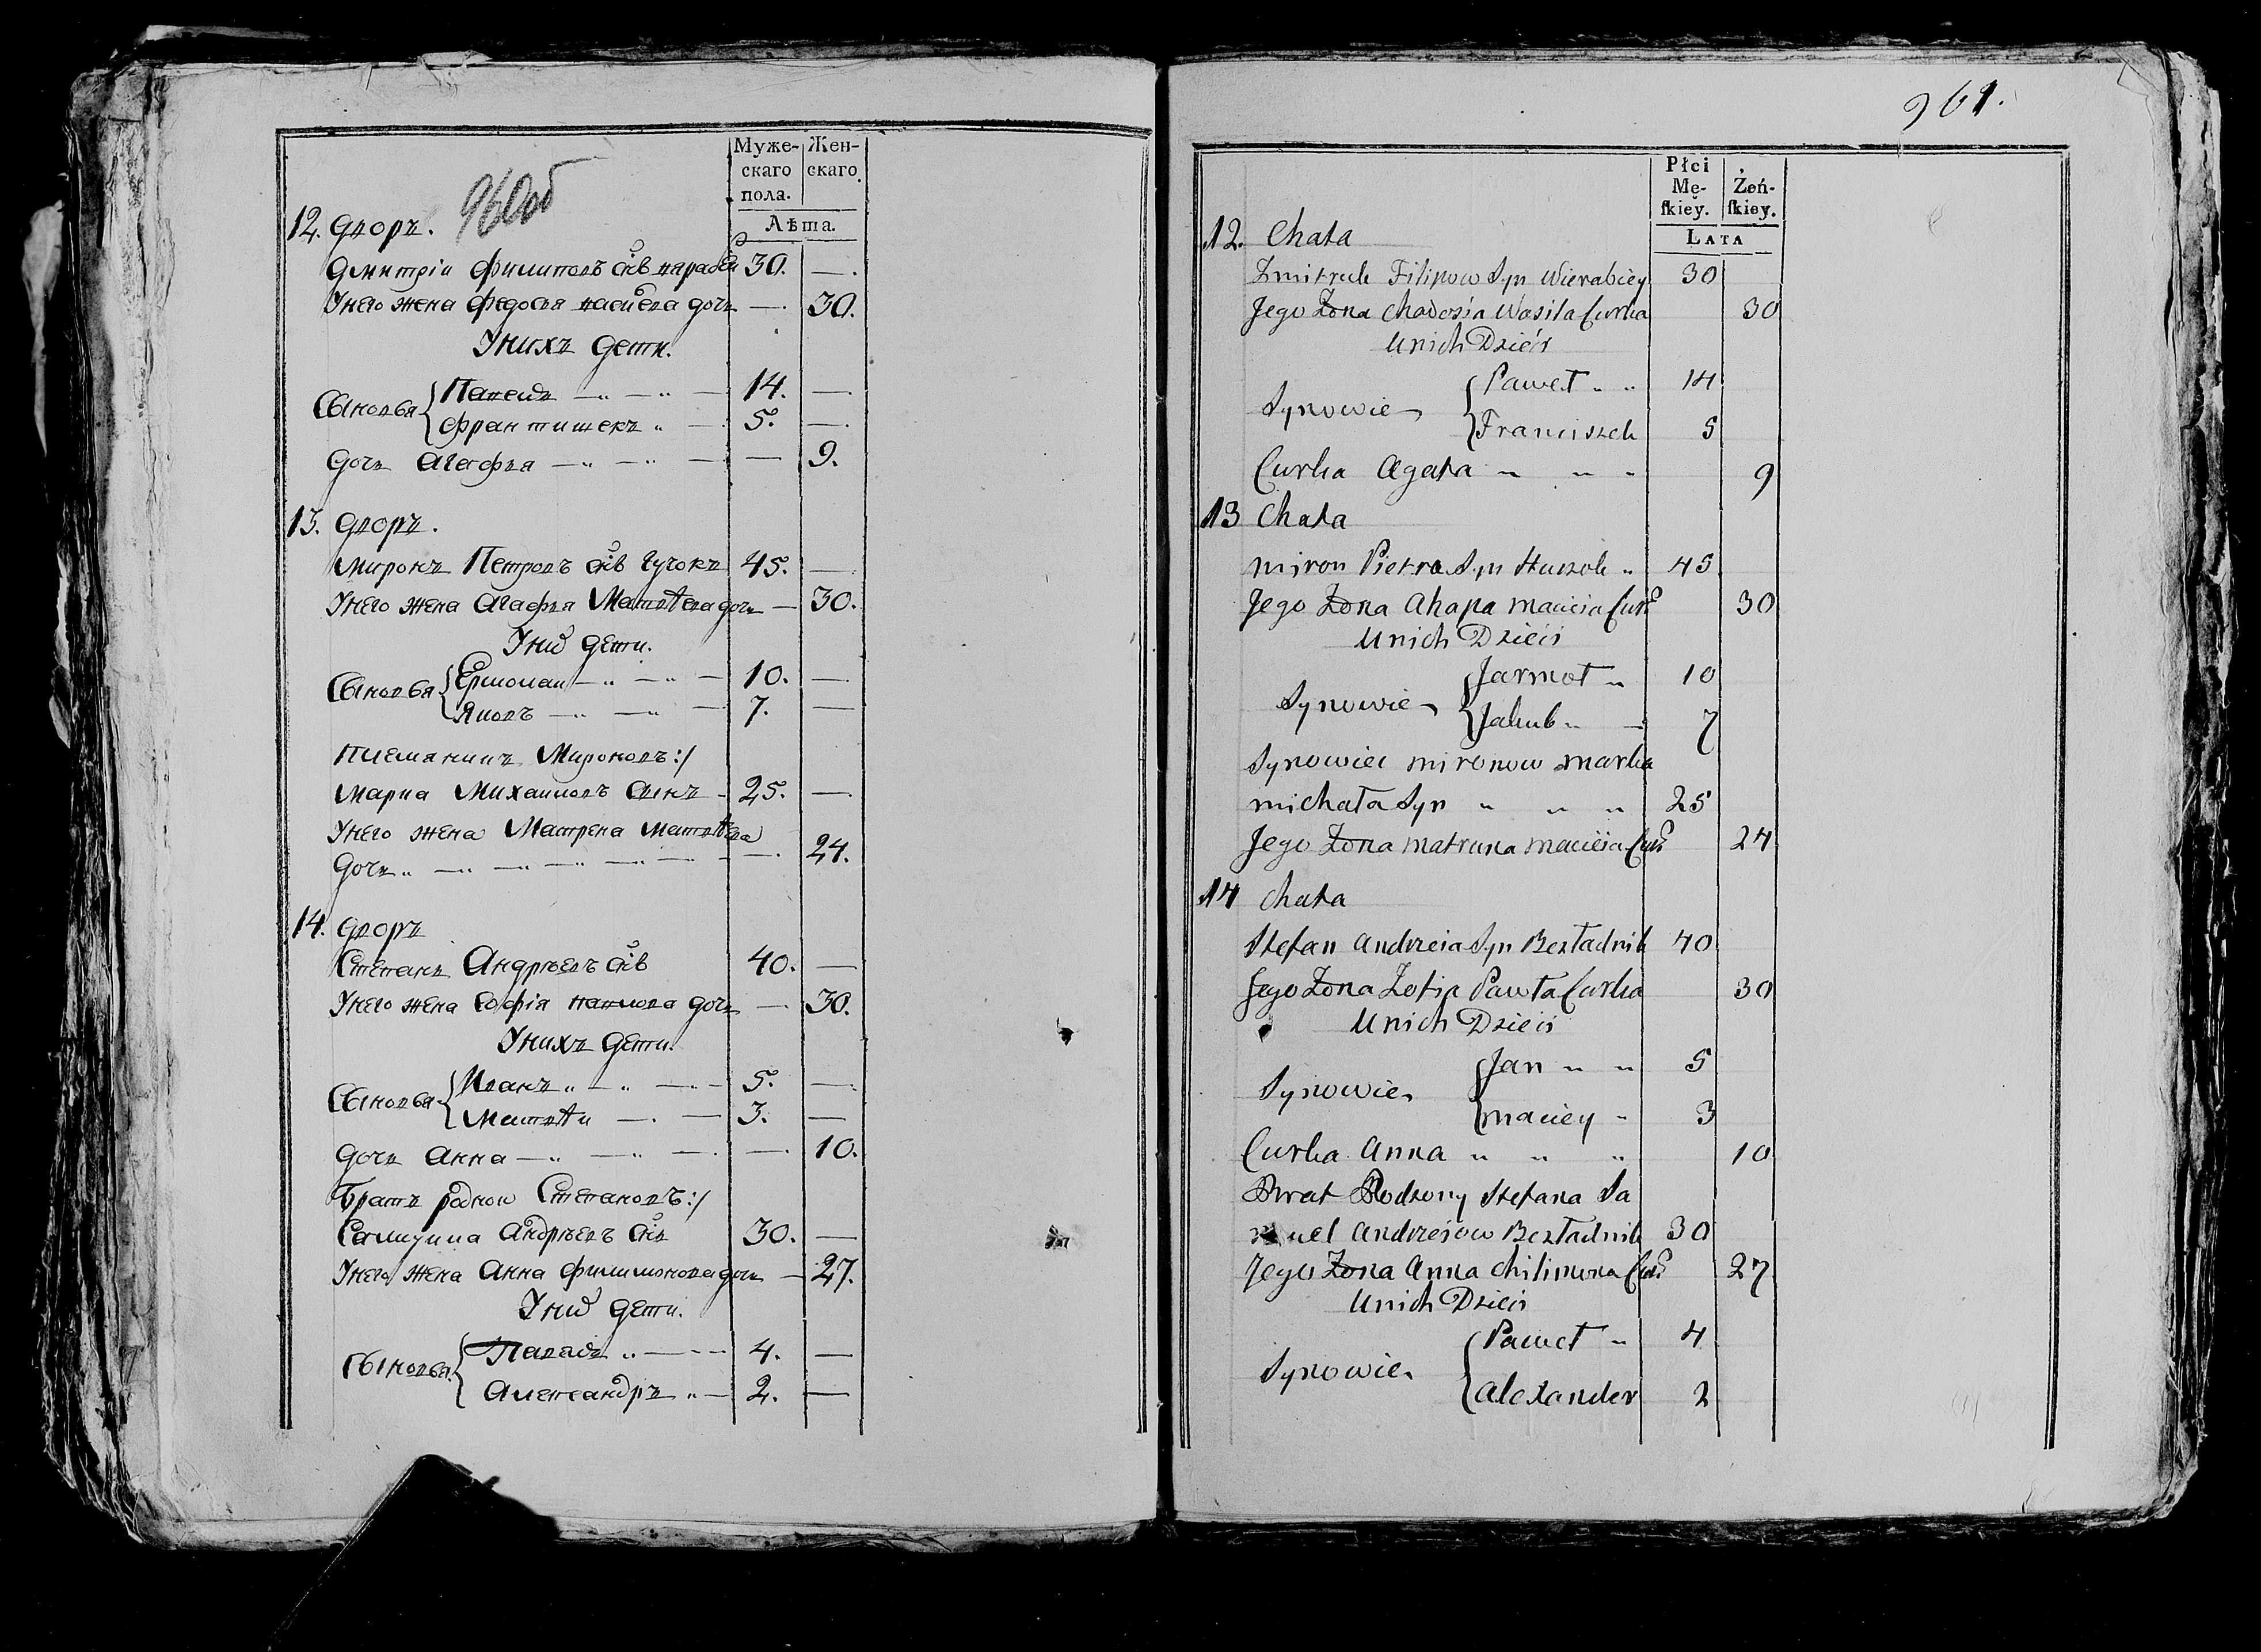 960об
Муже-
скаго
пола.
Жен-
скаго.
Лѣта.
12. Дворъ.
Дмитрій Филиповъ снъ 30. —.
У него жена Федосья дочь — 30.
У нихъ дети.
Сыновья { Павелъ — 14. —.
Францишекъ 5. —.
дочь Агафья — — 9.
13. Дворъ.
Миронъ Петровъ снъ Гучокъ 45. —.
У него жена Агафья Матвѣева дочь — 30.
У них дети.
Сыновья { Ермолай — 10. —.
Яковъ — 7. —
Племянникъ Мироновъ:/
Марка Михайловъ сынъ - 25. —.
У него жена Матрена Матвѣева
дочь — — 24.
14. Дворъ
Степанъ Андрѣевъ снъ 40. —
У него жена Софія Павлова дочь — 30.
У нихъ дети.
Сыновья { Иванъ — 5. —.
Матвѣй — 3. —
дочь Анна — —. 10.
Братъ родной Степановъ:/
Самуйла Андрѣевъ снъ 30. —
У него жена Анна Филимонова дочь — 27.
У них дети.
Сыновья { Павелъ — 4. —
Александръ — 2. —
961.
Płci
Mę-
ſkiey.
Żeń-
ſkiey.
Lata
12. Chata
Zmitruk Filipow Syn Wierabiey 30
Jego Żona Chadosia Wasila Curka 30
U nich Dzieci
Synowie { Paweł 14
Franciszek 5
Curka Agata 9
13 Chata
Miron Pietra Syn Huczok 45
Jego Żona Ahapa Macieia Cur: 30
U nich Dzieci
Synowie { Jarmoł 10
Jakub 7
Synowiec Mironow Marka
Michała Syn 25
Jego Żona Matruna Macieia Cur: 24
14 Chata
Stefan Andrzeia Syn Bezładnik 40
Jego Żona Zofia Pawła Curka 30
U nich Dzieci
Synowie { Jan 5
Maciey 3
Curka Anna 10
Brat Rodzony Stefana Sa
muel Andrzejow Bezładnik 30
Jego Żona Anna Chilimona Cur: 27
U nich Dzieci
Synowie { Paweł 4
Alexander 2